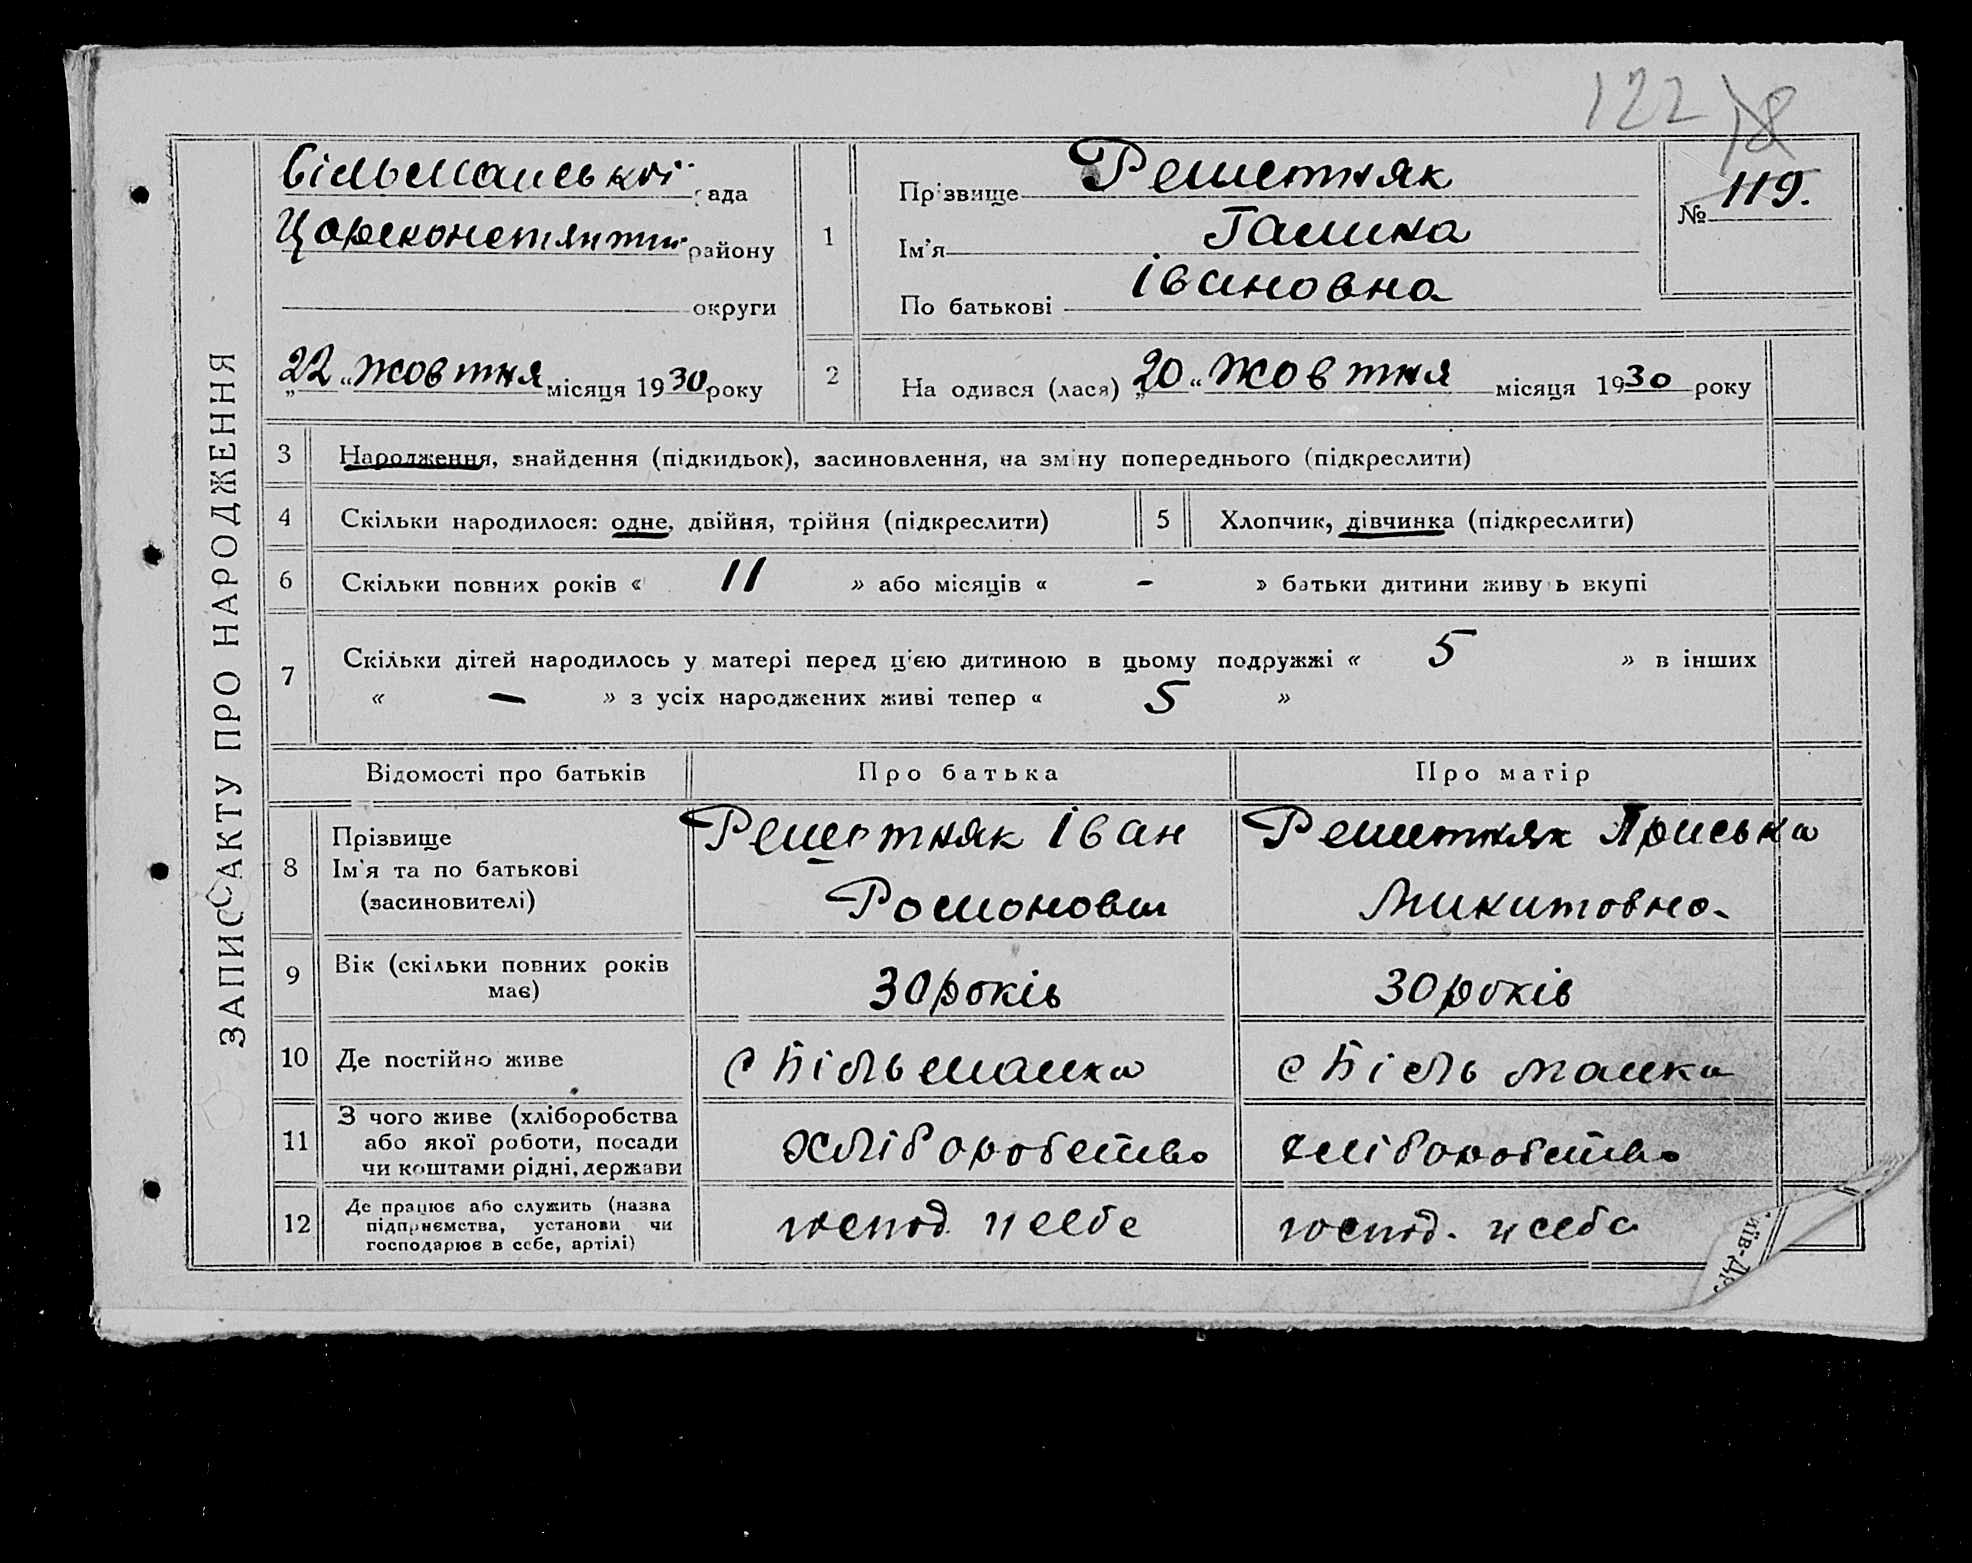 122 78
Більманської рада
Цареконстянтин району
округи
„22“ жовтня місяця 1930 року
1
Прізвище Решетняк
Ім’я Галина
По батькові Івановна
№ 119.
2
На одився (лася) „20“ жовтня місяця 1930 року
ЗАПИС АКТУ ПРО НАРОДЖЕННЯ
3 Народження, знайдення (підкидьок), засиновлення, на зміну попереднього (підкреслити)
4 Скільки народилося: одне, двійня, трійня (підкреслити)
5 Хлопчик, дівчинка (підкреслити)
6 Скільки повних років « 11 » або місяців « - » батьки дитини живу ь вкупі
7 Скільки дітей народилось у матері перед ц’єю дитиною в цьому подружжі « 5 » в інших
« — » з усіх народжених живі тепер « 5 »
Відомості про батьків
Про батька
Про матір
8 Прізвище
Ім’я та по батькові
(засиновителі)
Решетняк Іван
Романович
Решетняк Приська
Микитовна.
9 Вік (скільки повних років
має)
30 років
30 років
10 Де постійно живе
с Більманка
с Більманка
11 З чого живе (хліборобства
або якої роботи, посади
чи коштами рідні, держави
хліборобство
хліборобство
12 Де працює або служить (назва
підприємства, установи чи
господарює в себе, артілі)
господ. у себе
господ. у себе